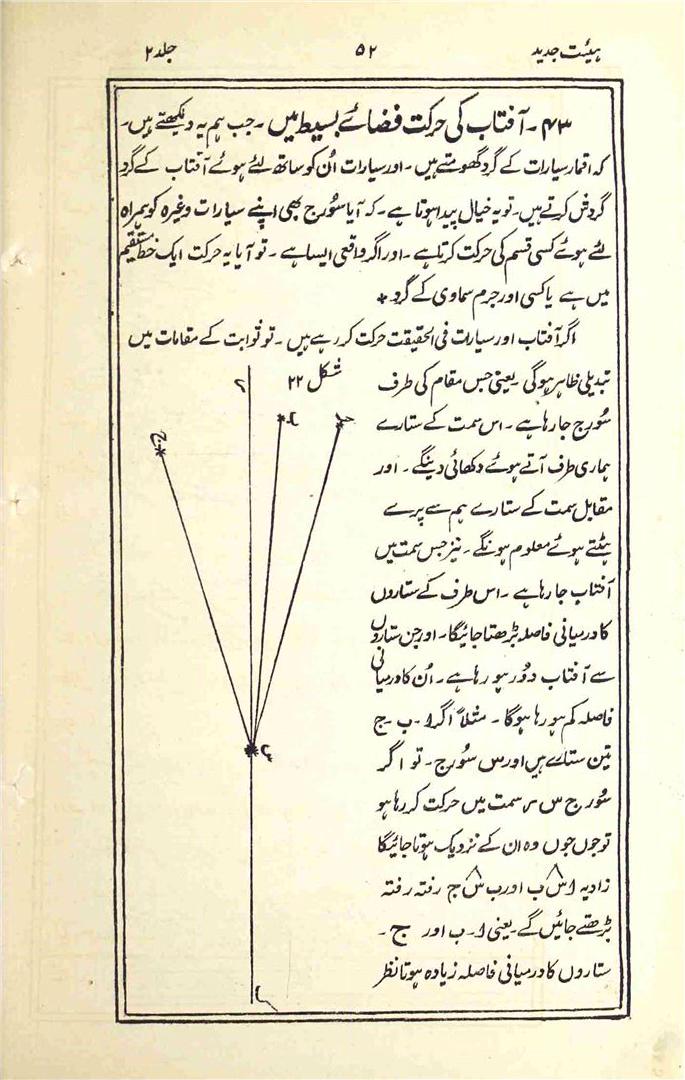 ہیئت جدید ۵۲ جلد ۲
۴۳۔ آفتاب کی حرکت فضائے بسیط میں ۔ جب ہم یہ دیکھتے ہیں۔
کہ اقمار سیارات کے گرد گھومتے ہیں ۔ اور سیارات اُن کو ساتھ لئے ہوئے آفتاب کے گرد
گردش کرتے ہیں۔ تو یہ خیال پیدا ہوتا ہے۔ کہ آیا سُورج بھی اپنے سیارات وغیرہ کو ہمراہ
لئے ہوئے کسی قسم کی حرکت کرتا ہے ۔ اور اگر واقعی ایسا ہے ۔ تو آیا یہ حرکت ایک خط مستقیم
میں ہے یا کسی اور جرم سماوی کے گرد *
اگر آفتاب اور سیارات فی الحقیقت حرکت کر رہے ہیں ۔ تو ثوابت کے مقامات میں
تبدیلی ظاہر ہو گی یعنی جس مقام کی طرف
سُورج جا رہا ہے ۔ اس سمت کے ستارے
ہماری طرف آتے ہوئے دکھائی دینگے ۔ اور
مقابل سمت کے ستارے ہم سے پرے
ہٹتے ہوئے معلوم ہونگے ۔ نیز جس سمت میں
آفتاب جا رہا ہے ۔ اس طرف کے ستاروں
کا درمیانی فاصلہ بڑھتا جائیگا ۔ اور جن ستاروں
سے آفتاب دُور ہو رہا ہے ۔ اُن کا درمیانی
فاصلہ کم ہو رہا ہوگا ۔ مثلاً اگر ا ۔ ب ۔ ج
تین ستارے ہیں اور س سُورج ۔ تو اگر
سُورج س سمت میں حرکت کر رہا ہو
تو جوں جوں وہ ان کے نزدیک ہوتا جائیگا
زاویہ ا س ب اور ب س ج رفتہ رفتہ
بڑھتے جائیں گے ۔ یعنی ا ۔ ب اور ج ۔
ستاروں کا درمیانی فاصلہ زیادہ ہوتا نظر
شکل ۲۲
ب
ج
س